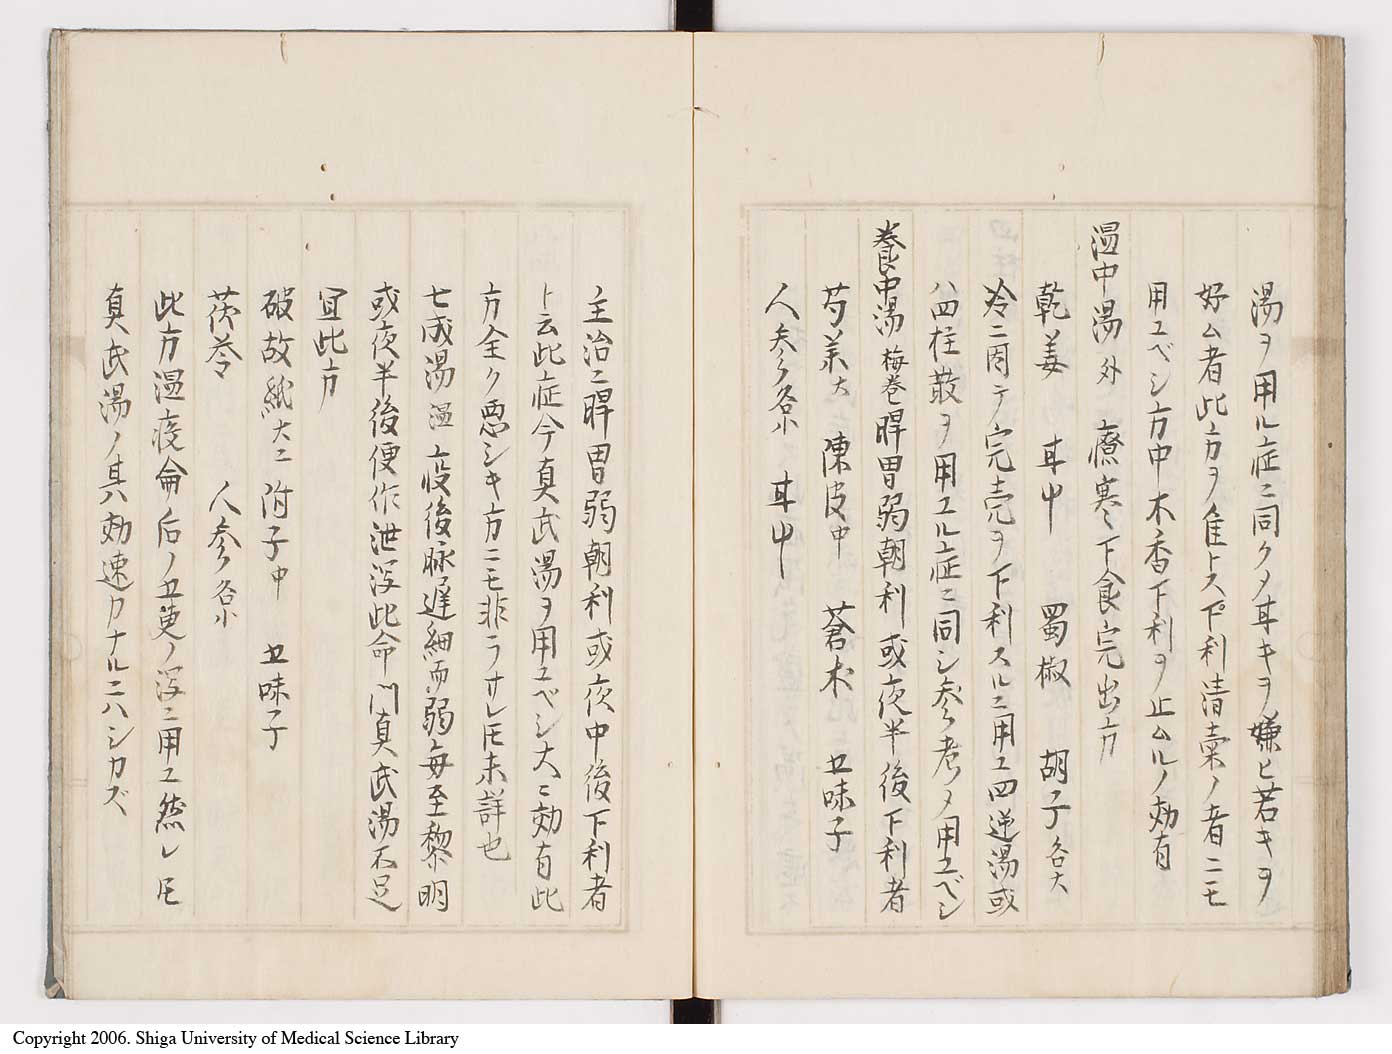 湯ヲ用ル症ニ同クメ耳キヲ嫌ヒ若キヲ
好ム者此方ヲ隹トス下利清稾ノ者ニモ
用ユベシ方中木香下利ヲ止ムルノ効有
温中湯 外 療寒々下食完出方
乾姜 耳中 蜀椒 胡子各大
冷ニ因テ完売ヲ下利スルニ用ユ四逆湯或
ハ四柱散ヲ用ユル症ニ同シ参考メ用ユベシ
養中湯 梅巻 脾胃弱朝利或夜半後下利者
芍薬大 陳皮中 蒼朮 五味子
人参各小 耳中
主治ニ脾胃弱朝利或夜中後下利者
ト云此症今真武湯ヲ用ユベシ大ニ効有此
方全ク悪シキ方ニモ非ラサレ𪜈未詳也
七成湯 温 疫後脉遅細而弱毎至黎明
或夜半後便作泄瀉此命門真武湯不足
宜此方
破故紙大ニ 附子中 五味子
茯苓 人参各小
此方温疫侖后ノ五更ノ瀉ニ用ユ然レ𪜈
真武湯ノ其効速カナルニハシカズ
Copyright 2006. Shiga University of Medical Science Library